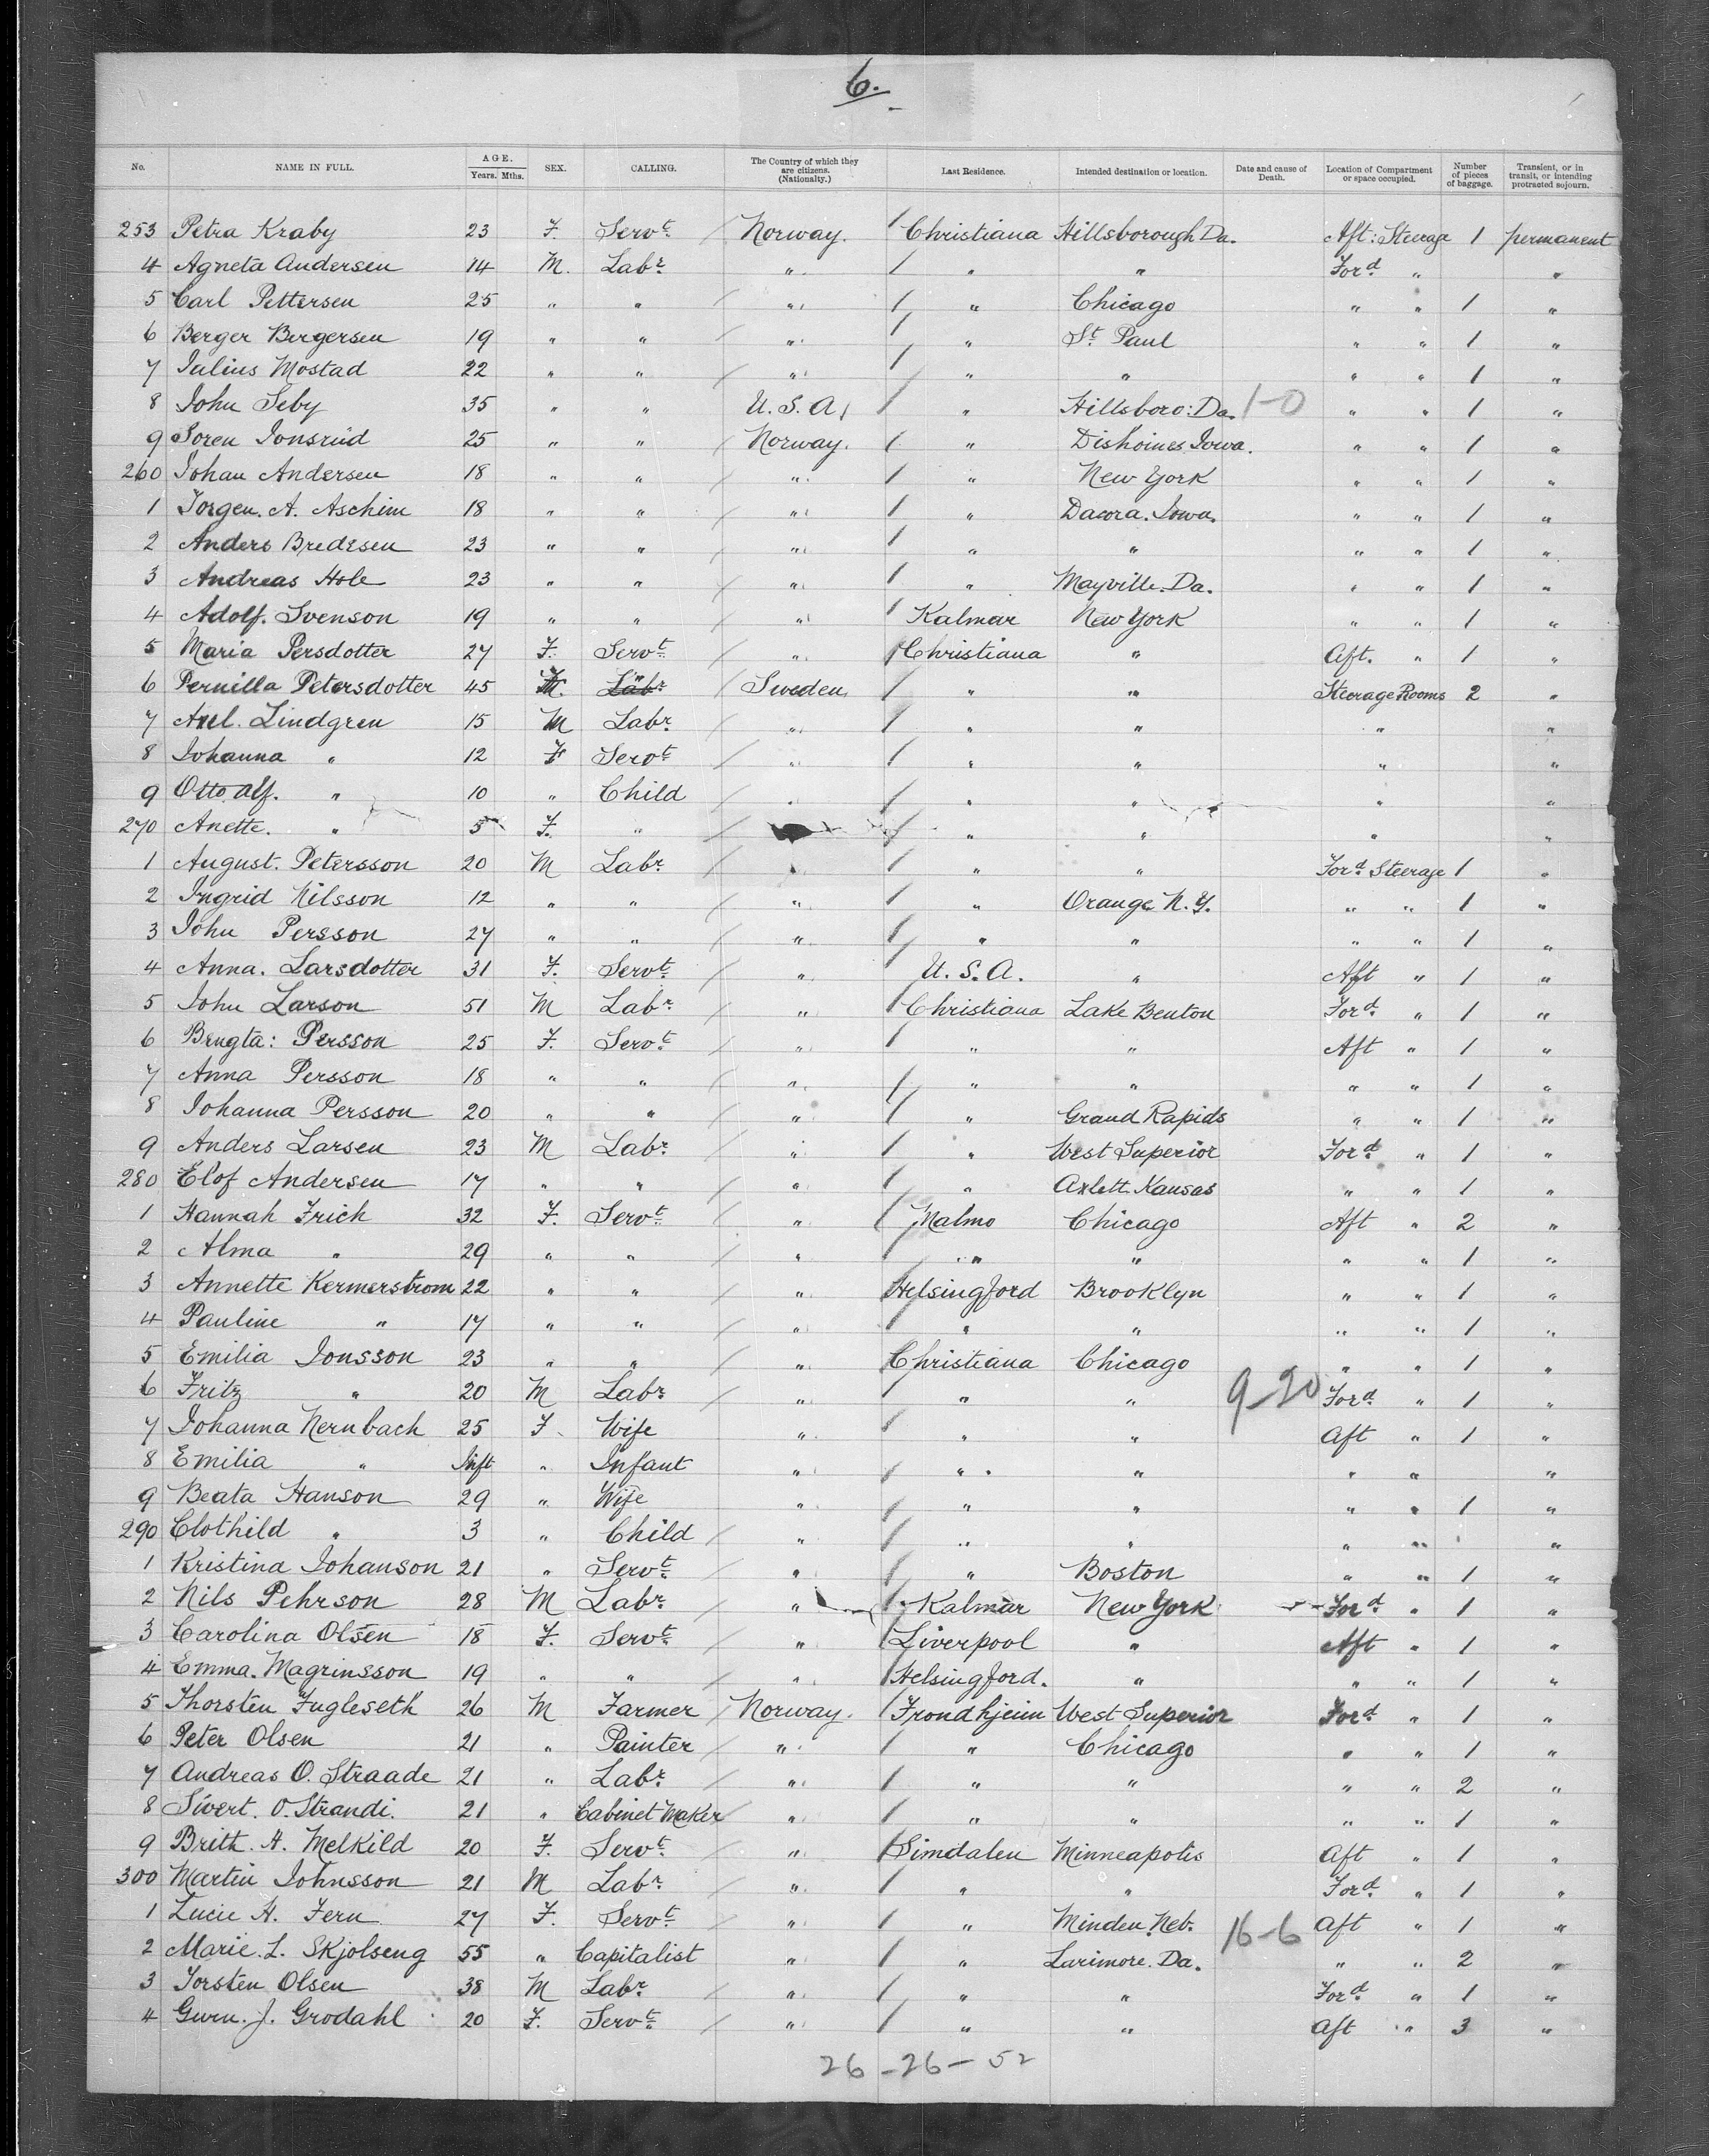 6.
No. NAME IN FULL. AGE. Years. Mths. SEX. CALLING. The Country of which they are citizens. (Nationality.) Last Residence. Intended destination or location. Date and cause of Death. Location of Compartment or space occupied. Number of pieces of baggage. Transient, or in transit, or intending protracted sojourn.
253 Petra Kraby 23 F. Servt / Norway. / Christiana Hillsborough Da. Aft: Steerage 1 permanent
4 Agneta Andersen 14 M. Labr / " / " " Ford " "
5 Carl Pettersen 25 " " / " / " Chicago " " 1 "
6 Berger Bergersen 19 " " / " / " St Paul " " 1 "
7 Julius Mostad 22 " " / " / " " " " 1 "
8 John Seby 35 " " U. S. A. / " Hillsboro: Da. 1-0 " " 1 "
9 Soren Jonsrud 25 " " / Norway. / " Dishoines Iowa. " " 1 "
260 Johan Andersen 18 " " / " / " New York " " 1 "
1 Jorgen. A. Aschim 18 " " / " / " Dacora. Iowa. " " 1 "
2 Anders Bredesen 23 " " / " / " " " " 1 "
3 Andreas Hole 23 " " / " / " Mayville. Da. " " 1 "
4 Adolf. Svenson 19 " " / " / Kalmar New York " " 1 "
5 Maria Persdotter 27 F. Servt / " / Christiana " Aft. " 1 "
6 Pernilla Petersdotter 45 F. Labr / Sweden / " " Steerage Rooms 2 "
7 Axel. Lindgren 15 M Labr / " / " " " "
8 Johanna " 12 F Servt / " / " " " "
9 Otto Alf. " 10 " Child / " / " " " "
270 Anette. " 5 F. " / / " " " "
1 August. Petersson 20 M Labr / " / " " Ford Steerage 1 "
2 Ingrid Nilsson 12 " " / " / " Orange N. Y. " " 1 "
3 John Persson 27 " " / " / " " " " 1 "
4 Anna. Larsdotter 31 F. Servt / " / U. S. A. " Aft " 1 "
5 John Larson 51 M Labr / " / Christiana Lake Benton Ford " 1 "
6 Bengta: Persson 25 F. Servt / " / " " Aft " 1 "
7 Anna Persson 18 " " / " / " " " " 1 "
8 Johanna Persson 20 " " / " / " Grand Rapids " " 1 "
9 Anders Larsen 23 M Labr / " / " West Superior Ford " 1 "
280 Elof Andersen 17 " " / " / " Axlett. Kansas " " 1 "
1 Hannah Frich 32 F. Servt / " / Malmo Chicago Aft " 2 "
2 Alma " 29 " " / " " " " " 1 "
3 Annette Kermerstrom 22 " " / " / Helsingford Brooklyn " " 1 "
4 Pauline " 17 " " / " / " " " " 1 "
5 Emilia Jonsson 23 " " / " / Christiana Chicago " " 1 "
6 Fritz " 20 M Labr / " / " " 9-20 Ford " 1 "
7 Johanna Nernbach 25 F. Wife " / " " Aft " 1 "
8 Emilia " Inft " Infant " / " " " " "
9 Beata Hanson 29 " Wife " / " " " " 1 "
290 Clothild " 3 " Child / " / " " " " "
1 Kristina Johanson 21 " Servt " / " Boston " " 1 "
2 Nils Pehrson 28 M Labr " / Kalmar New York Ford " 1 "
3 Carolina Olsen 18 F. Servt " / Liverpool " Aft " 1 "
4 Emma. Magrinsson 19 " " " / Helsingford. " " " 1 "
5 Thorsten Fugleseth 26 M Farmer / Norway. / Frondhjeim West Superior Ford " 1 "
6 Peter Olsen 21 " Painter / " / " Chicago " " 1 "
7 Andreas O. Straade 21 " Labr / " / " " " " 2 "
8 Sivert. O. Strandi. 21 " Cabinet Maker / " / " " " " 1 "
9 Brith. H. Melkild 20 F. Servt / " / Simdalen Minneapolis Aft " 1 "
300 Martin Johnsson 21 M Labr / " / " " Ford " 1 "
1 Lucie H. Fern 27 F. Servt / " / " Minden. Neb. 16-6 Aft " 1 "
2 Marie. L. Skjolseng 55 " Capitalist " / " Larimore. Da. " " 2 "
3 Torsten Olsen 38 M Labr / " / " " Ford " 1 "
4 Gurn. J. Grodahl 20 F. Servt / " / " " Aft " 3 "
26-26-52